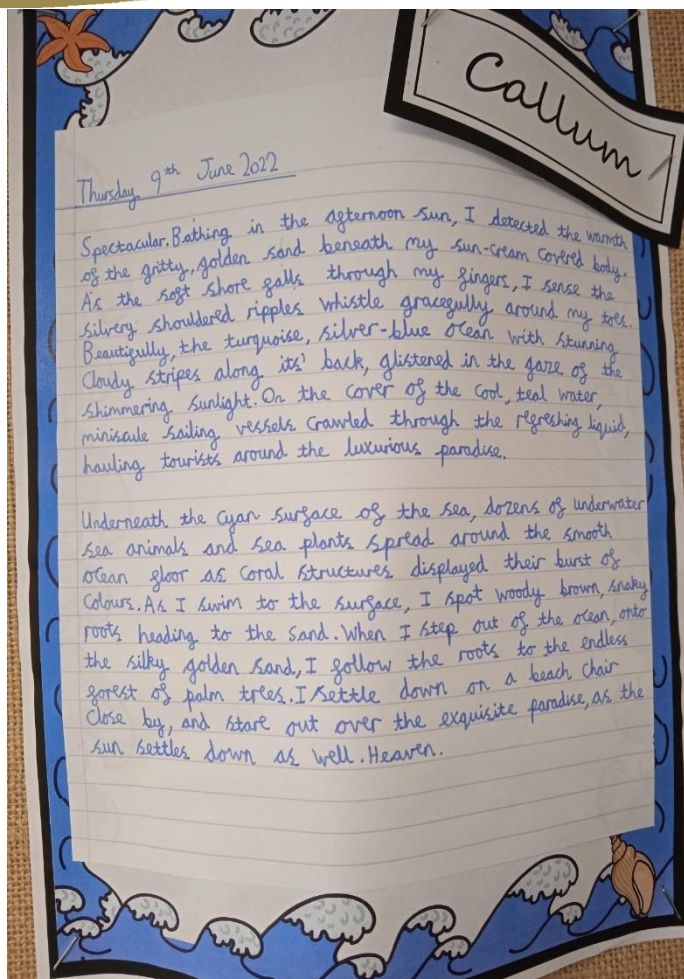 Callum
Thursday 9th June 2022
Spectacular. Bathing in the afternoon sun, I detected the warmth
of the gritty, golden sand beneath my sun-cream covered body.
As the soft shore falls through my fingers, I sense the
silvery shouldered ripples whistle gracefully around my toes.
Beautifully, the turquoise, silver-blue ocean with stunning
cloudy stripes along its' back, glistened in the gaze of the
shimmering sunlight. On the cover of the cool, teal water,
miniscule sailing vessels crawled through the refreshing liquid,
hauling tourists around the luxurious paradise.
Underneath the cyan surface of the sea, dozens of underwater
sea animals and sea plants spread around the smooth
ocean floor as coral structures displayed their burst of
colours. As I swim to the surface, I spot woody brown, snaky
roots heading to the sand. When I step out of the ocean, onto
the silky golden sand, I follow the roots to the endless
forest of palm trees. I settle down on a beach chair
close by, and stare out over the exquisite paradise, as the
sun settles down as well. Heaven.